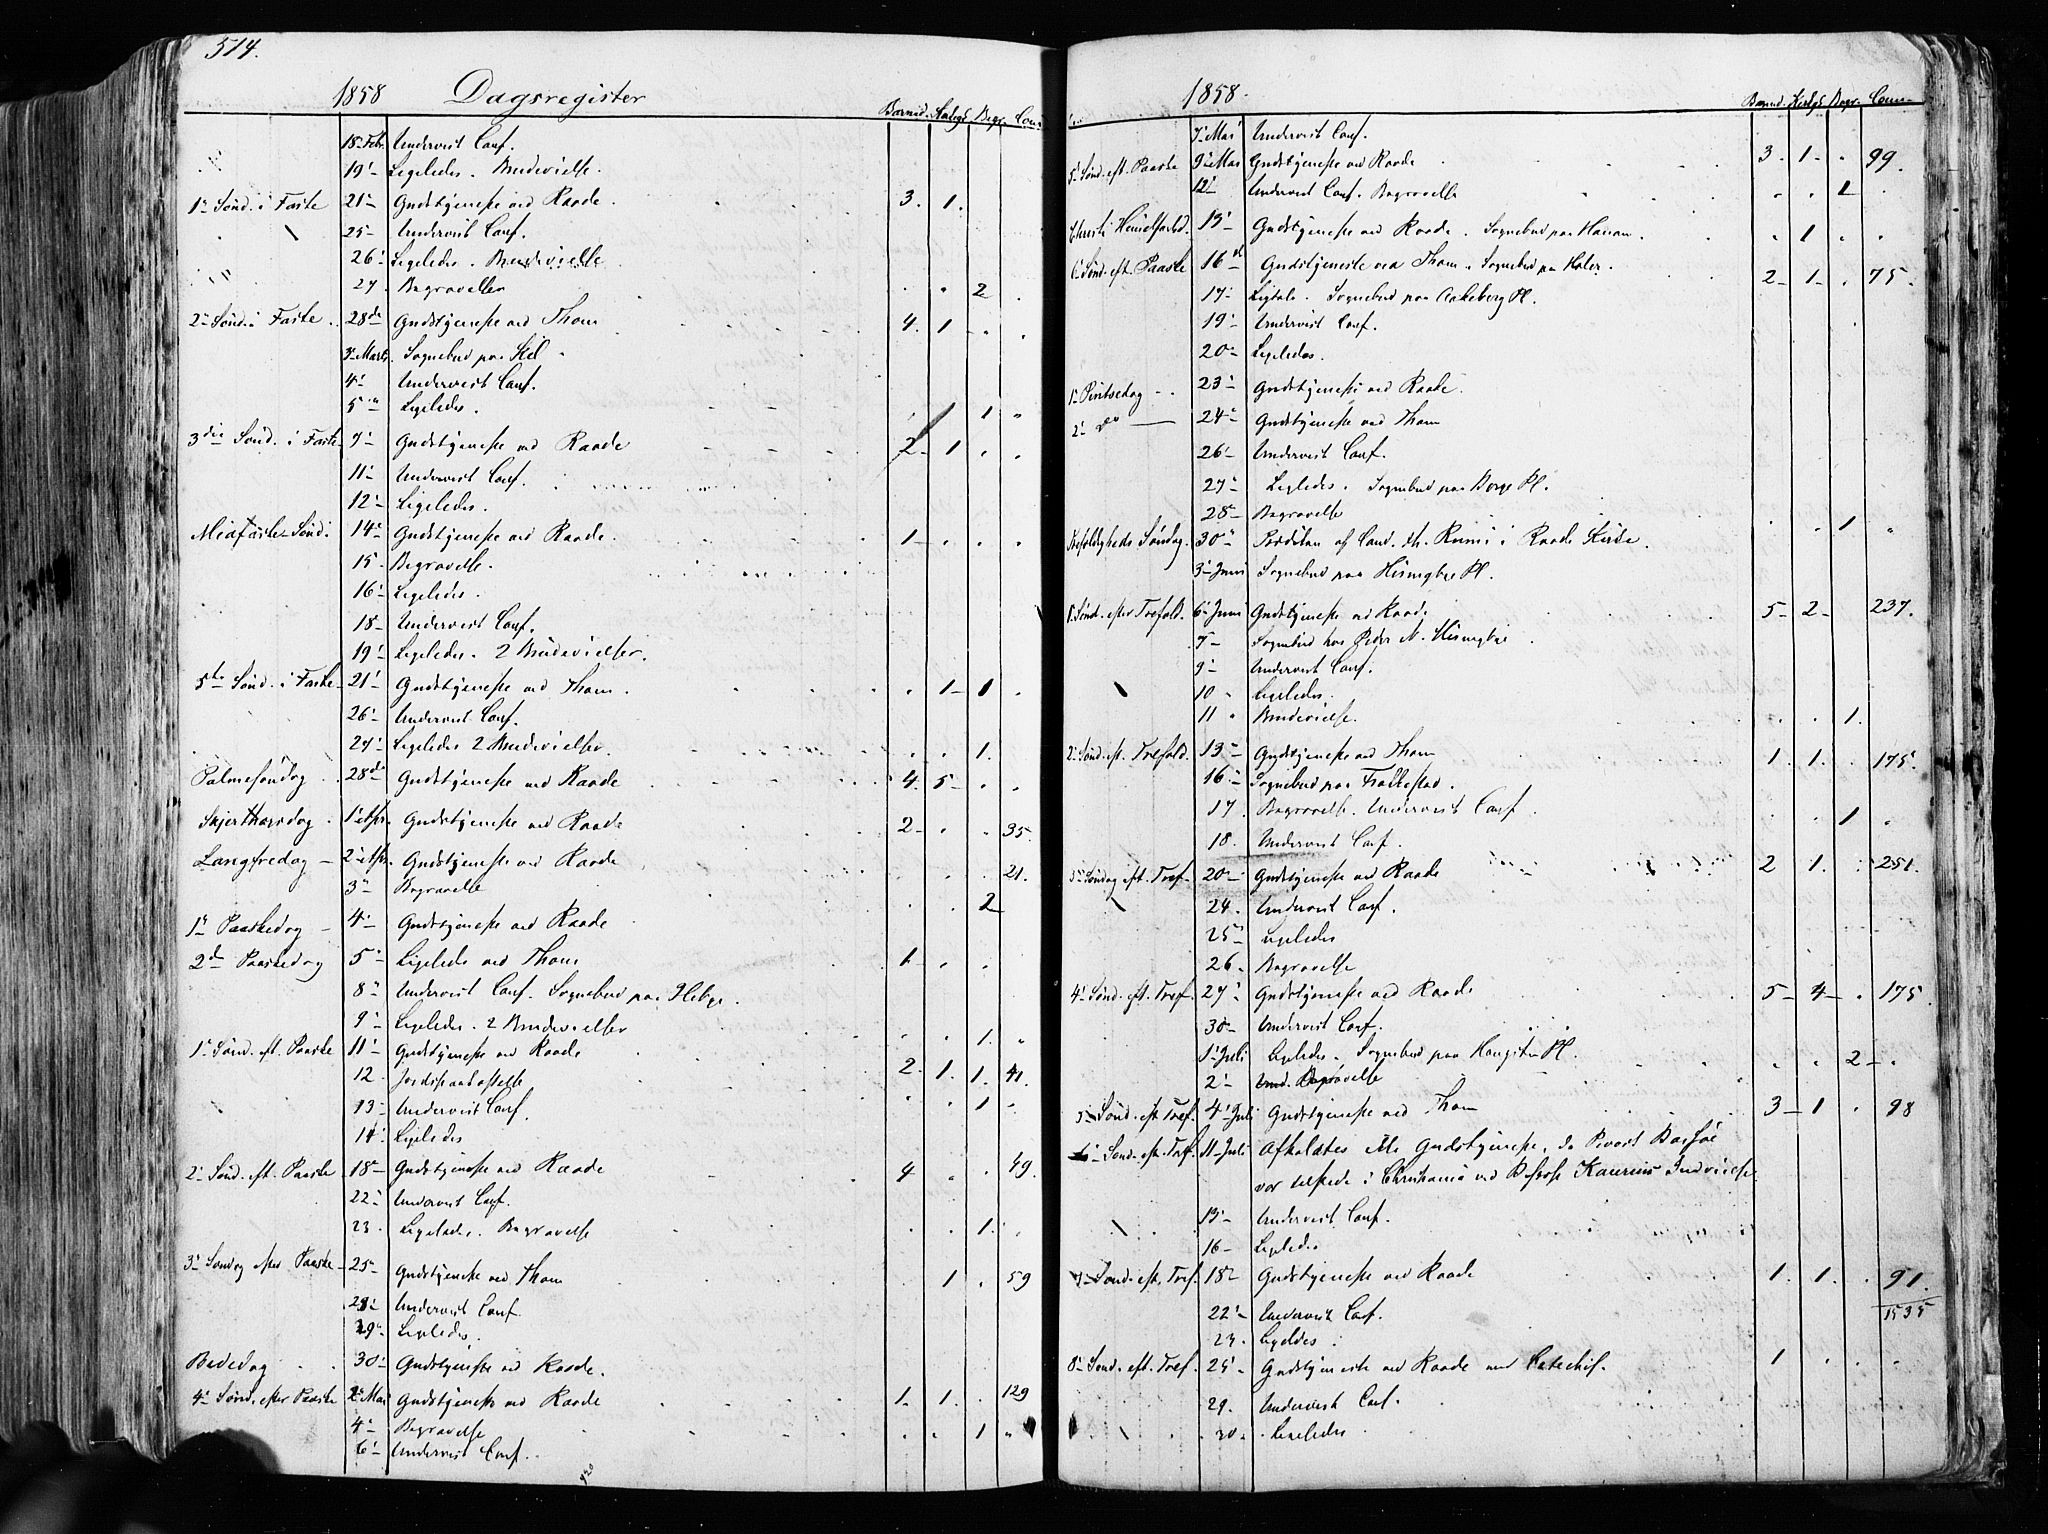 514.
1858 Dagsregister
Barned. Kirkeg. Begr. Com.
18 Feb. Undervist Conf.
19 Ligeledes. Brudevielse.
1 Sønd. i Faste 21 Gudstjeneste ved Raade. 3. 1.
25 Undervist Conf.
26 Ligeledes. Brudevielse.
27. Begravelse 2
2 Sønd. i Faste 28de Gudstjeneste ved Thom 4. 1
3 Marts. Sognebud paa Kil
4 Undervist Conf.
5 Ligeledes. 1 1
3die Sønd. i Faste 7 Gudstjeneste ved Raade 2 1
11 Undervist Conf.
12 Ligeledes.
Midfaste Sønd. 14 Gudstjeneste ved Raade. 1
15. Begravelse.
16 Ligeledes.
18 Undervist Conf.
19 Ligeledes. 2 Brudevielser.
5te Sønd. i Faste 21 Gudstjeneste ved Thom. 1 1
26 Undervist Conf.
27 Ligeledes 2 Brudevielser. 1.
Palmesøndag 28de Gudstjeneste ved Raade 4. 5
Skjerthorsdag 1 Apr. Gudstjeneste ved Raade 2 35
Langfredag 2 Apr. Gudstjeneste ved Raade 21.
3 Begravelse 2
1 Paaskedag 4 Gudstjeneste ved Raade
2den Paaskedag 5 Ligeledes ved Thom 1
8 Undervist Conf. Sognebud paa Heby.
9 Ligeledes. 2 Brudevielser 1.
1 Sønd. eft. Paaske 11 Gudstjeneste ved Raade 2. 1. 1. 41.
12. Jordspaakastelse 1
13 Undervist Conf.
14 Ligeledes
2 Sønd. eft. Paaske 18 Gudstjeneste ved Raade 4 49.
22 Undervist Conf.
23. Ligeledes. Begravelse 1.
3 Søndag efter Paaske 25 Gudstjeneste ved Thom 1 59
28 Undervist Conf
29 Ligeledes.
Bededag 30 Gudstjeneste ved Raade.
4 Sønd. efter Paaske 2 Mai Gudstjeneste ved Raade 1. 1. 129
4 Begravelse 1
6 Undervist Conf.
1858.
Barned. Kirkeg. Begr. Com.
7 Mai Undervist Conf.
5 Sønd. eft. Paaske 9 Mai Gudstjeneste ved Raade 3. 1. 99.
12 Undervist Conf. Begravelse 1
Christi Himelfartsd. 13 Gudstjeneste ved Raade. Sognebud paa 1
6 Sønd. eft. Paaske 16 Gudstjeneste ved Thom. Sognebud paa 2 1 75.
17 Ligtale. Sognebud paa Aakeberg Pl.
19 Undervist Conf.
20 Ligeledes.
1 Pintsedag 23 Gudstjeneste ved Raade.
2 do 24 Gudstjeneste ved Thom
26 Undervist Conf.
27 Ligeledes. Sognebud paa Borge Pl.
28 Begravelse 1
Trefoldigheds Søndag. 30 Prædiken af Cand. th. i Raade Kirke.
3 Juni Sognebud paa Pl.
1 Sønd. efter Trefold. 6 Juni Gudstjeneste ved Raade 5 2 237.
7 Sognebud hos Peder N.
9 Undervist Conf.
10 Ligeledes.
11 Brudevielse. 1.
2 Sønd. eft. Trefold. 13 Gudstjeneste ved Thom 1. 1. 175.
16 Sognebud paa
17. Begravelse. Undervist Conf. 1
18. Undervist Conf.
3 Søndag eft. Tref. 20 Gudstjeneste ved Raade 2 1. 251.
24. Undervist Conf.
25 Ligeledes
26. Begravelse
4 Sønd. eft. Tref. 27 Gudstjeneste ved Raade 5 4 175.
30 Undervist Conf.
1 Juli Ligeledes. Sognebud paa Pl. 2
2 Begravelse
5 Sønd. eft Tref. 4 Juli Gudstjeneste ved Thom 3 1 98
6 Sønd. eft. Tref. 11 Juli Afholdtes ikke Gudstjeneste, da
var tilstede i Christiania ved Indvielse
15 Undervist Conf.
16 Ligeledes
7 Sønd. eft. Tref. 18 Gudstjeneste ved Raade 1. 1. 91.
1535
22 Undervist Conf.
23. Ligeledes
8 Sønd. eft. Tref. 25 Gudstjeneste ved Raade med Catechis. 1
29. Undervist Conf.
30. Ligeledes